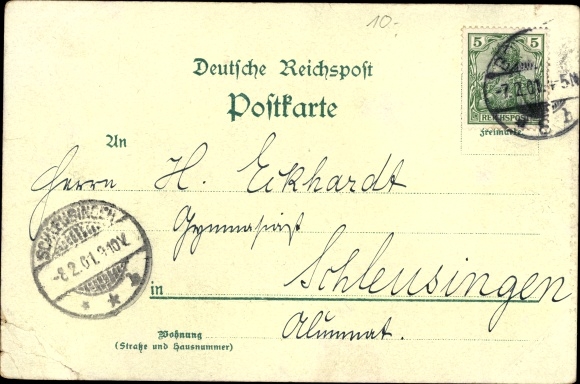 10.-
Deutsche Reichspost
Postkarte
5 5
REICHSPOST
Freimarke
-7.2.01. 4-5N
An
Herrn H. Eckhardt
Gymnasiast
SCHLEUSINGEN
-8.2.01.9-10V.
in Schleusingen
Alumnat.
Wohnung
(Straße und Hausnummer)